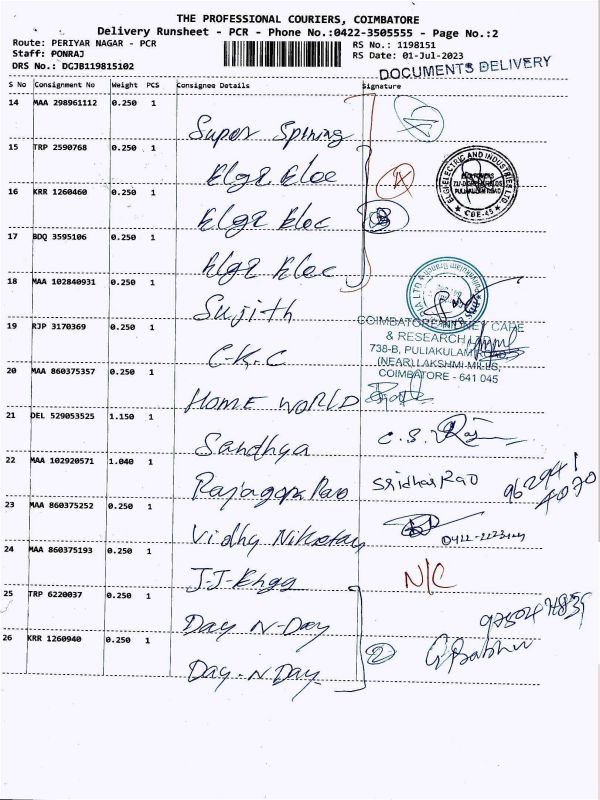 THE PROFESSIONAL COURIERS, COIMBATORE
Delivery Runsheet - PCR - Phone No.:0422-3505555 - Page No.:2
Route: PERIYAR NAGAR - PCR
RS No.: 1198151
Staff: PONRAJ
RS Date: 01-Jul-2023
DRS No.: DGJB119815102
DOCUMENTS DELIVERY
S No Consignment No Weight PCS Consignee Details Signature
14 MAA 298961112 0.250 1
Super Spining
15 TRP 2590768 0.250 1
Elgi Elec
16 KRR 1260460 0.250 1
Elgi Elec
17 BDQ 3595106 0.250 1
Elgi Elec
18 MAA 102840931 0.250 1
Sujith
19 RJP 3170369 0.250 1
C-K-C
COIMBATORE KIDNEY CARE
& RESEARCH
738-B, PULIAKULAM ROAD
(NEAR) LAKSHMI MILLS,
COIMBATORE - 641 045
20 MAA 860375357 0.250 1
HOME WORLD
21 DEL 529053525 1.150 1
Sandhya
22 MAA 102920571 1.040 1
Rajagopa Rao
Sridhar Rao
23 MAA 860375252 0.250 1
Vidhy
24 MAA 860375193 0.250 1
J-J-
N/C
25 TRP 6220037 0.250 1
Day N-Day
26 KRR 1260940 0.250 1
Day-N Day
2
ELGI ELECTRIC AND INDUSTRIES LTD.
CBE-45